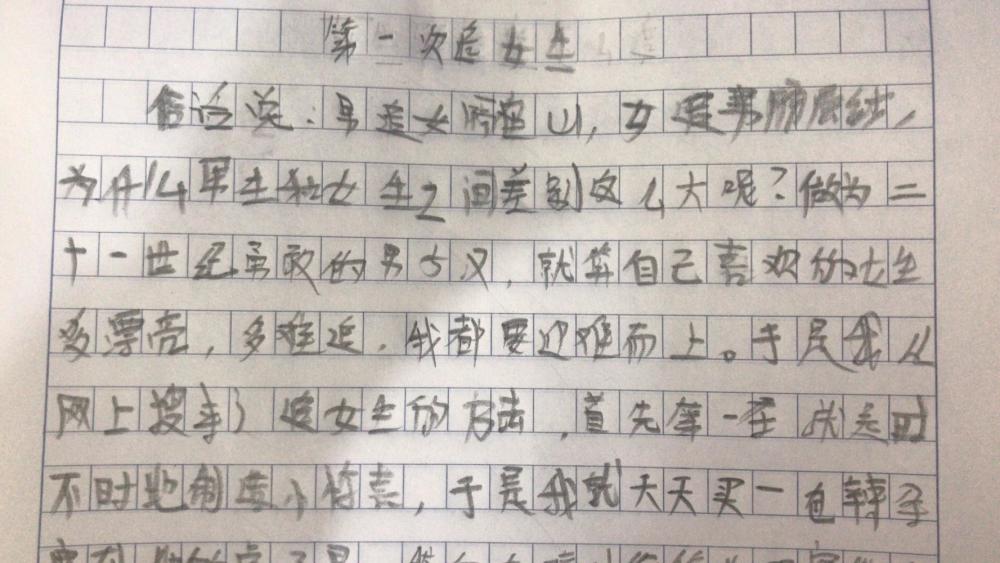 第一次追女生
俗话说:男追女隔座山,女追男隔层纱,
为什么男生和女生之间差别这么大呢?做为二
十一世纪勇敢的男子汉,就算自己喜欢的女生
多漂亮,多难追,我都要迎难而上。于是我从
网上搜到追女生的方法,首先第一至就是时
不时地制造小惊喜,于是我就天天买一包辣条